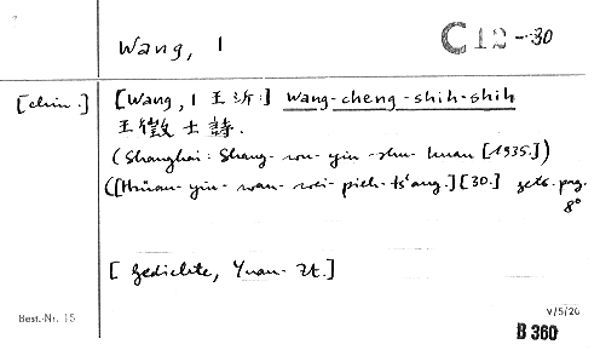 Wang, I
C 12 -30
[chin.]
[Wang, I 王沂:] Wang-cheng-shih-shih
王徵士詩.
(Shanghai: Shang-wu-yin-shu-kuan [1935.])
([Hsüan-yin-wan-wei-pieh-ts'ang.] [30.] getr. pag.
8°
[Gedichte, Yuan-Zt.]
Best.-Nr. 15
V/5/20
B 360